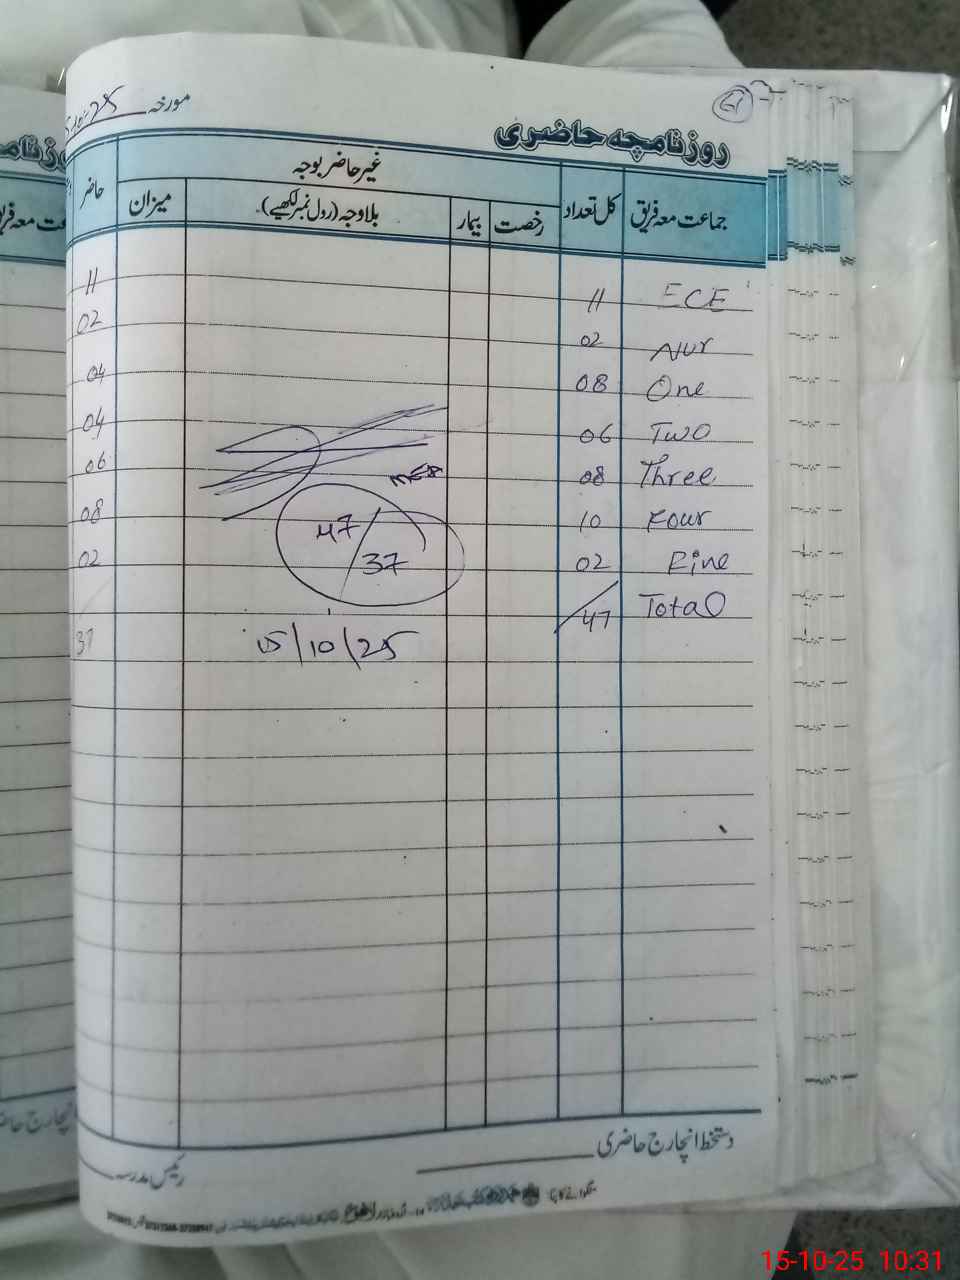 61
مورخہ 15-10-25
روزنامچہ حاضری
جماعت معہ فریق کل تعداد غیر حاضر بوجہ حاضر
رخصت بیمار بلاوجہ (رول نمبر لکھیے)۔ میزان
ECE 11 11
Nur 02 02
One 08 04
Two 06 04
Three 08 06
Four 10 08
Five 02 02
Total 47 37
47/37
15/10/25
دستخط انچارج حاضری
رئیس مدرسہ
15-10-25 10:31